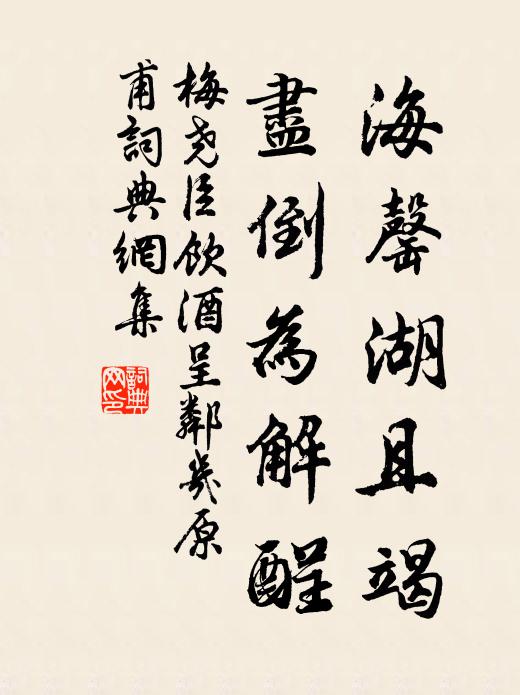 海罄湖且竭
盡倒為解酲
梅堯臣飲酒呈鄰幾原
甫詞典網集
詞典
网印